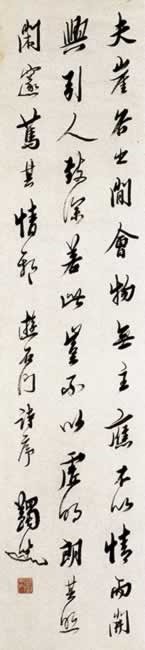 夫崖谷之間會物無主應不以情而開
興引人致深若此豈不以虛明朗其照
閒邃篤其情耶 遊石門詩序 蠲叟